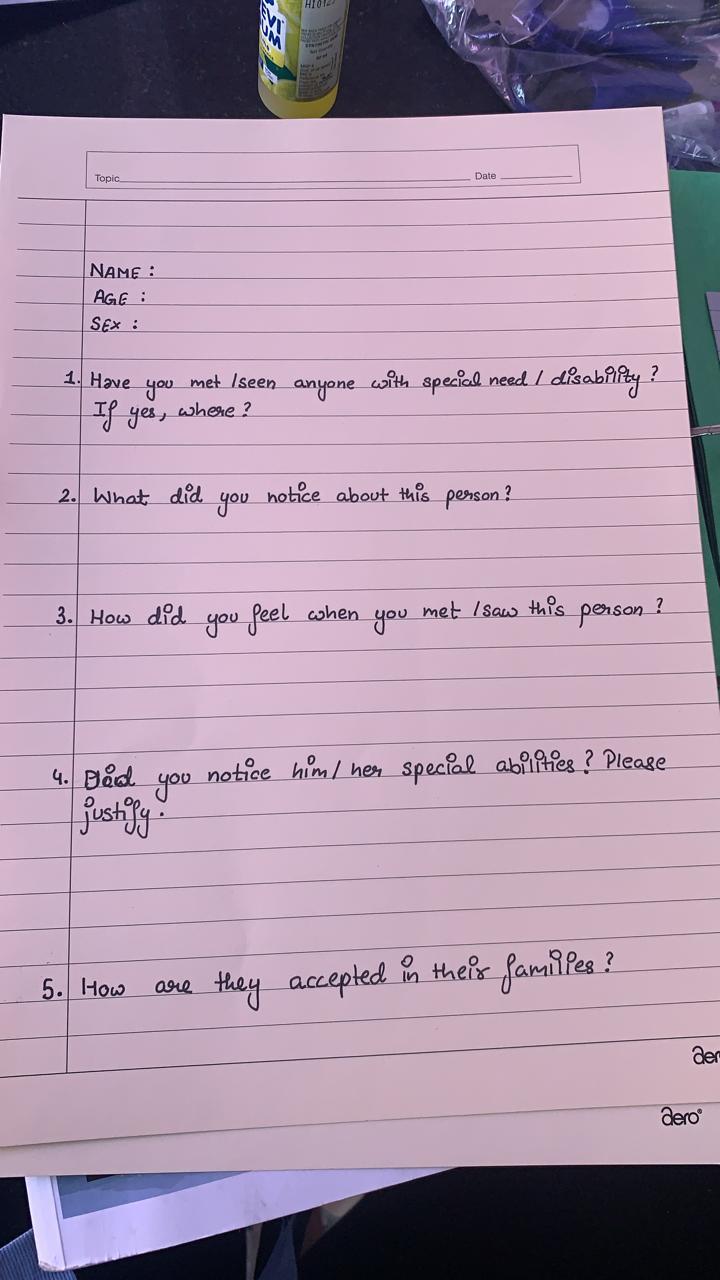 H10123
EVI
UM
Topic
Date
NAME :
AGE :
SEX :
1. Have you met /seen anyone with special need / disability ?
If yes, where ?
2. What did you notice about this person?
3. How did you feel when you met /saw this person ?
4. Did you notice him/ her special abilities? Please
justify.
5. How are they accepted in their families?
aer
aero